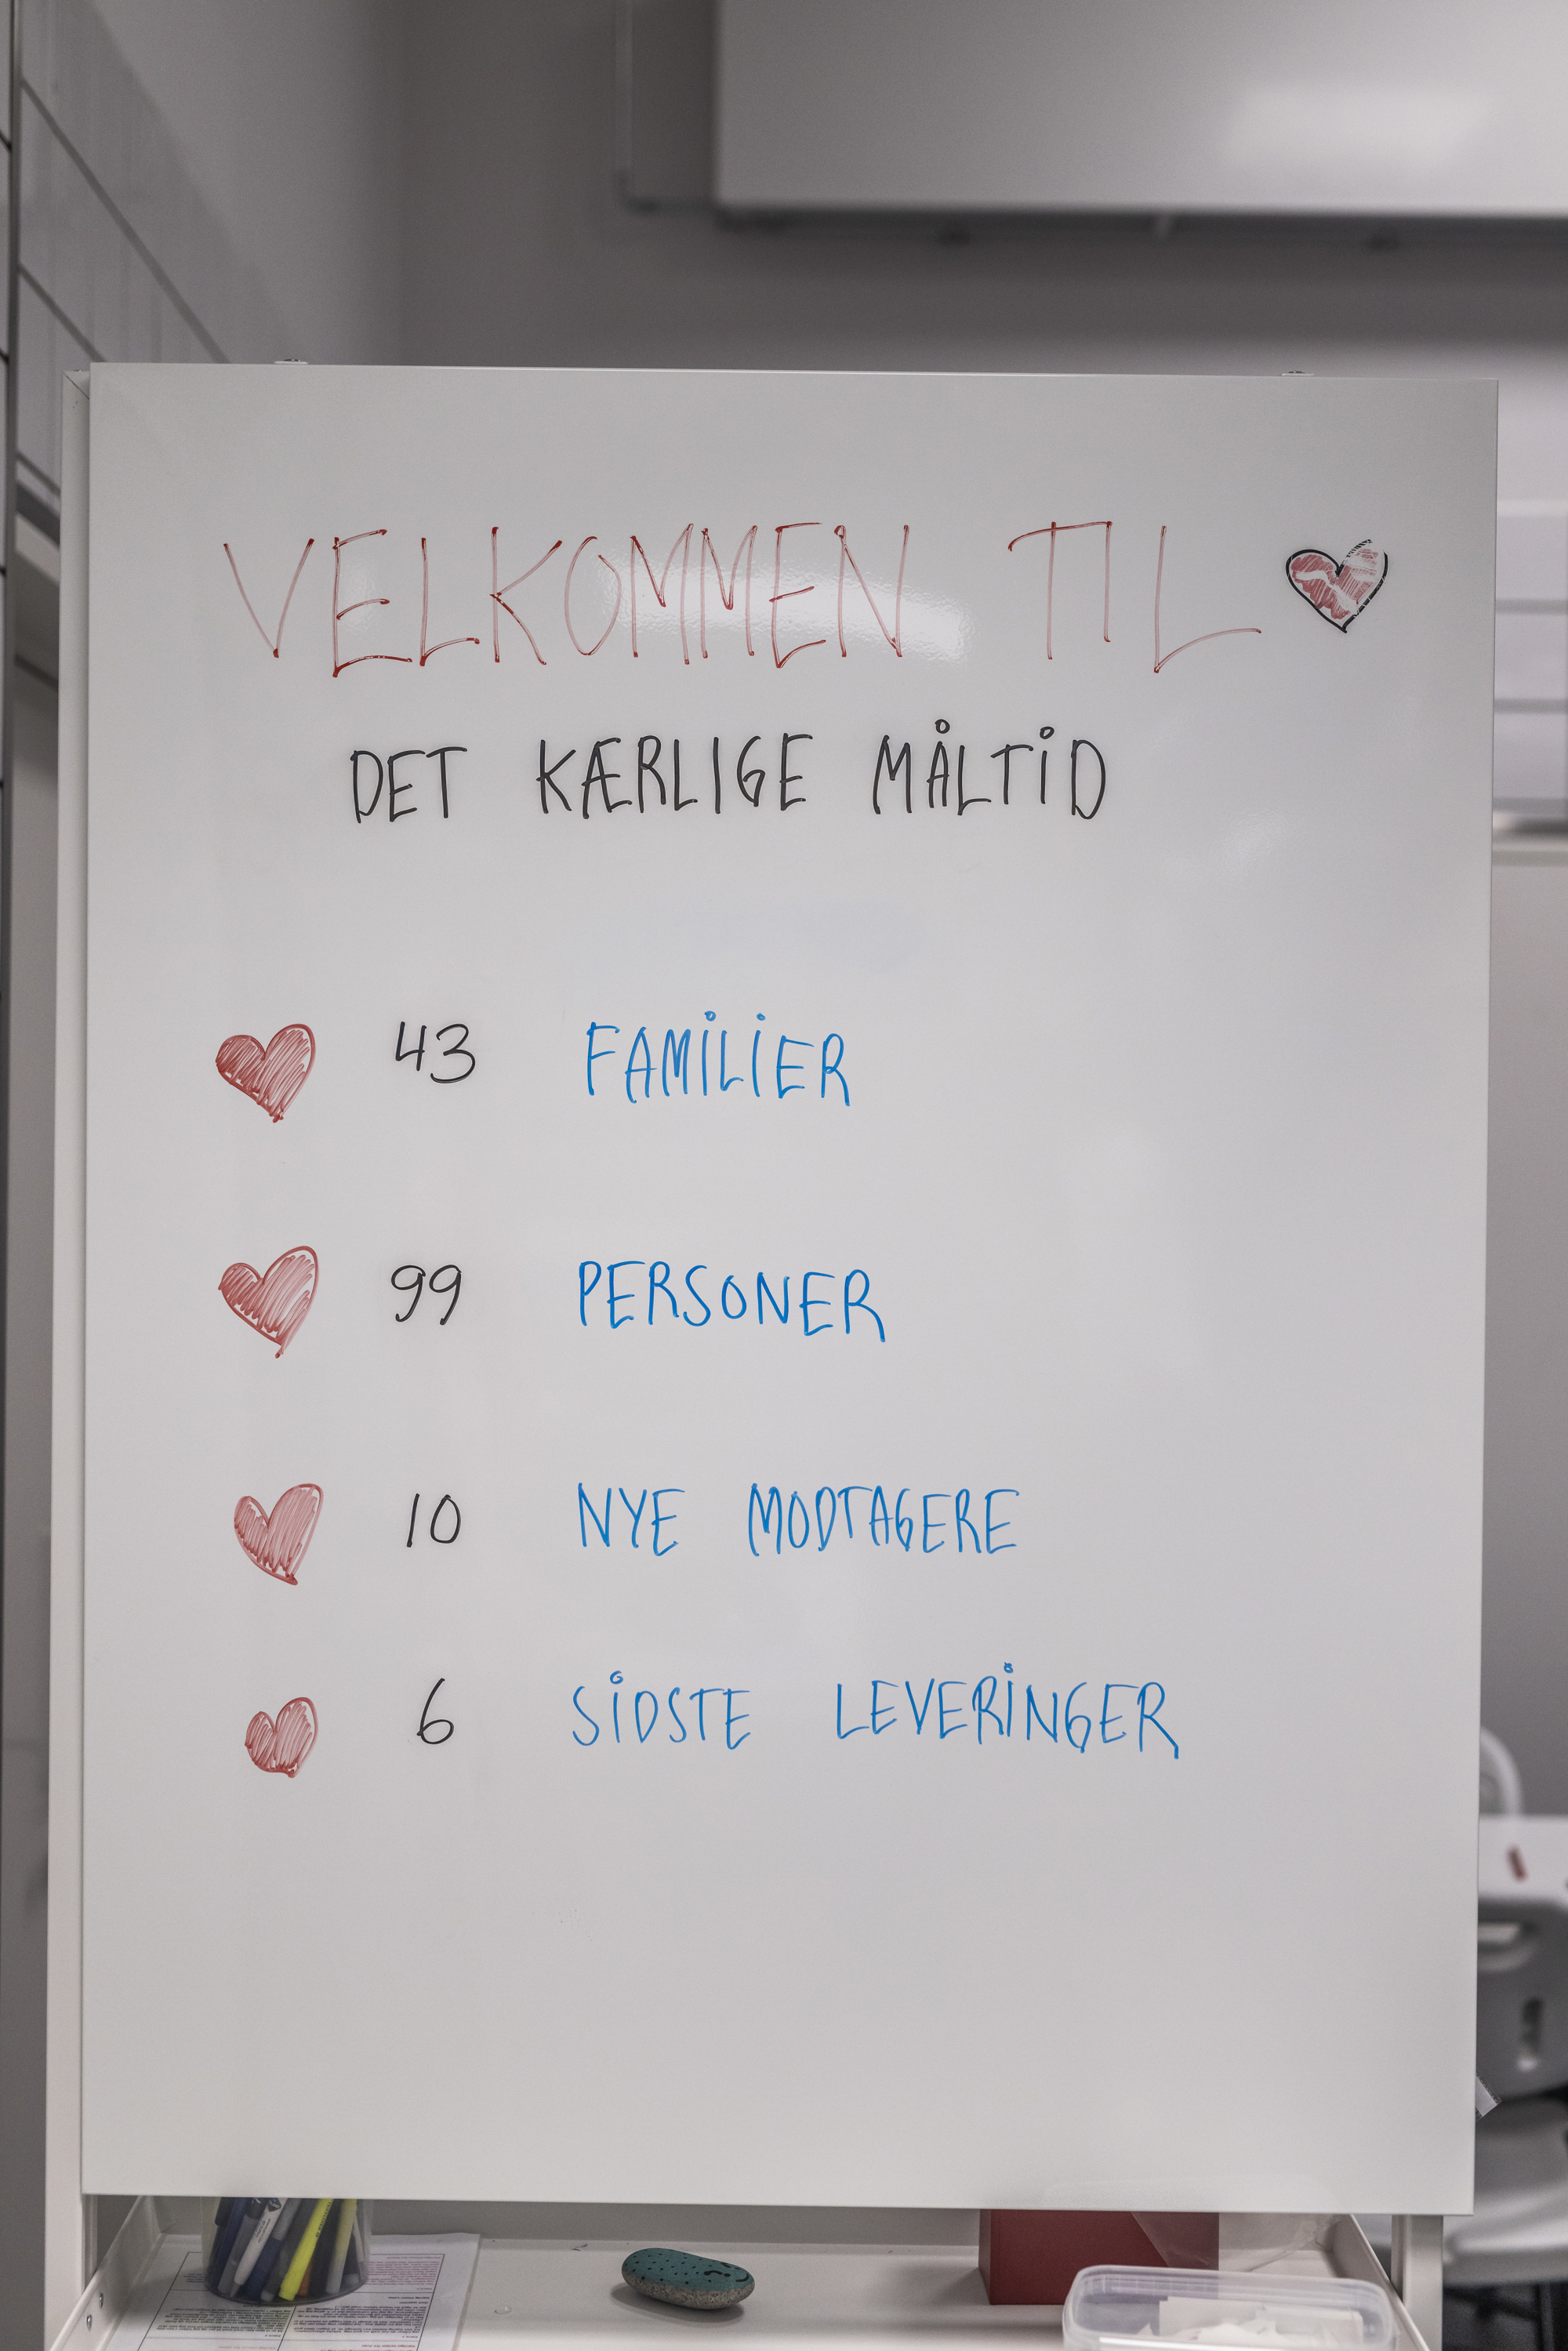 VELKOMMEN TIL
DET KÆRLIGE MÅLTID
43 FAMILIER
99 PERSONER
10 NYE MODTAGERE
6 SIDSTE LEVERINGER